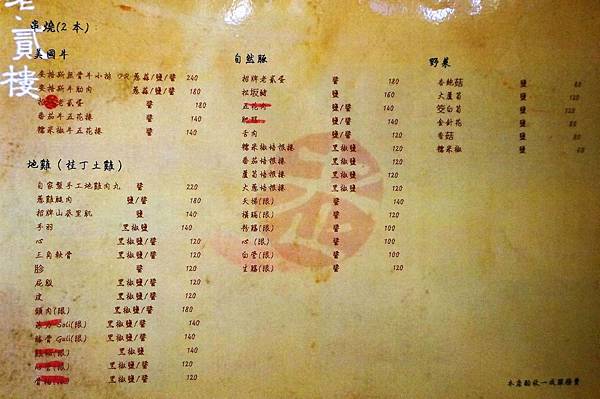 老.貳樓
串燒(2本)
美國牛
安格斯無骨牛小排 OR 蔥蒜/鹽/醬 240
安格斯牛肋肉 蔥蒜/鹽/醬 180
老貳蛋 醬 180
番茄牛五花捲 鹽/醬 140
糯米椒牛五花捲 鹽/醬 140
地雞(桂丁土雞)
自家製手工地雞肉丸 醬 220
蔥雞腿肉 鹽/醬 180
招牌山葵里肌 鹽 140
手羽 黑椒鹽 140
心 黑椒鹽/醬 140
三角軟骨 黑椒鹽/醬 140
胗 醬 120
屁股 黑椒鹽/醬 120
皮 黑椒鹽/醬 120
頸肉(限) 黑椒鹽/醬 180
Gali(限) 黑椒鹽/醬 140
膝骨 Gali(限) 黑椒鹽/醬 140
黑椒鹽/醬 140
黑椒鹽/醬 120
黑椒鹽/醬 120
自然豚
招牌老貳蛋 醬 180
松坂豬 鹽 160
五花肉 鹽 140
肥腸 鹽
舌肉 鹽 120
糯米椒培根捲 黑椒鹽 120
番茄培根捲 黑椒鹽 120
蘆筍培根捲 黑椒鹽 120
大蔥培根捲 黑椒鹽 120
天梯(限) 醬 120
橫膈(限) 醬 120
粉腸(限) 醬 100
心(限) 醬 100
白管(限) 醬 100
生腸(限) 醬 120
野菜
杏鮑菇 鹽 60
大蘆筍 鹽 120
筊白筍 鹽 100
金針花 鹽 80
香菇 鹽 80
糯米椒 鹽 60
本店酌收一成服務費